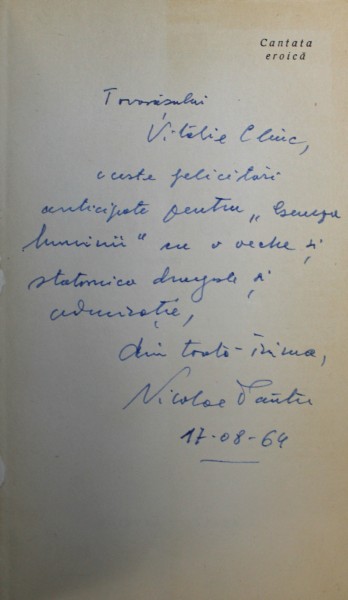 Cantata
eroică
Tovarășului
Vitalie Cliuc,
aceste felicitări
anticipate pentru „Esența
luminii" cu o veche și
statornică dragoste și
admirație,
din toată inima,
Nicolae Tăutu
17-08-64